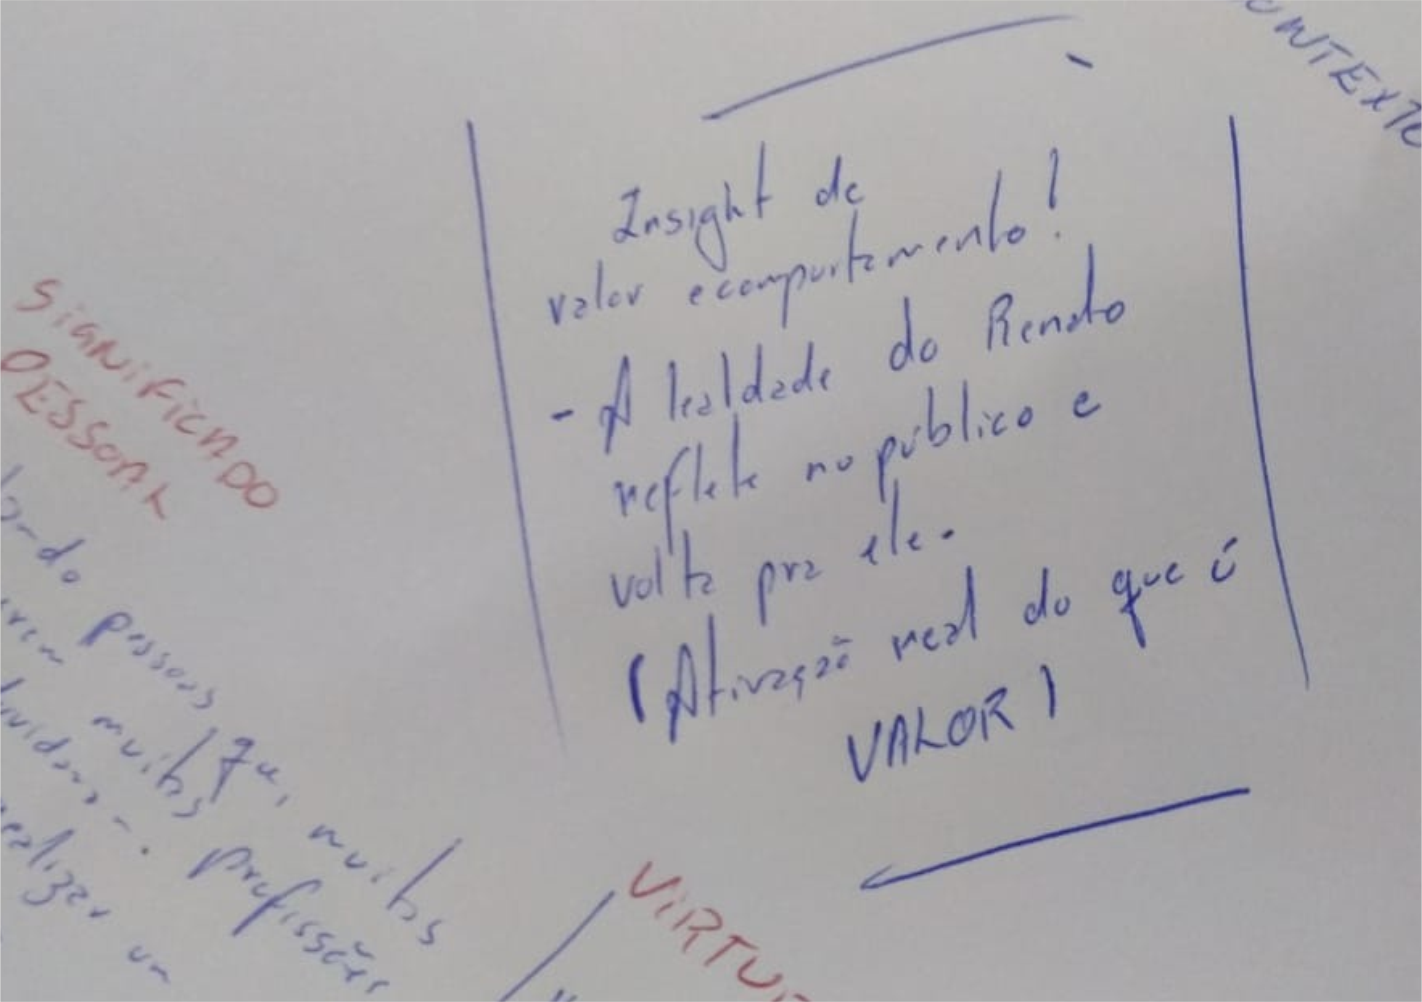 CONTEXTO
Insight de
valor e comportamento!
- A lealdade do Renato
reflete no público e
volta pra ele.
(Ativação real do que é
VALOR)
SIGNIFICADO
PESSOAL
pessoas, que, muitas
muitas profissões
realizar um
VIRTU